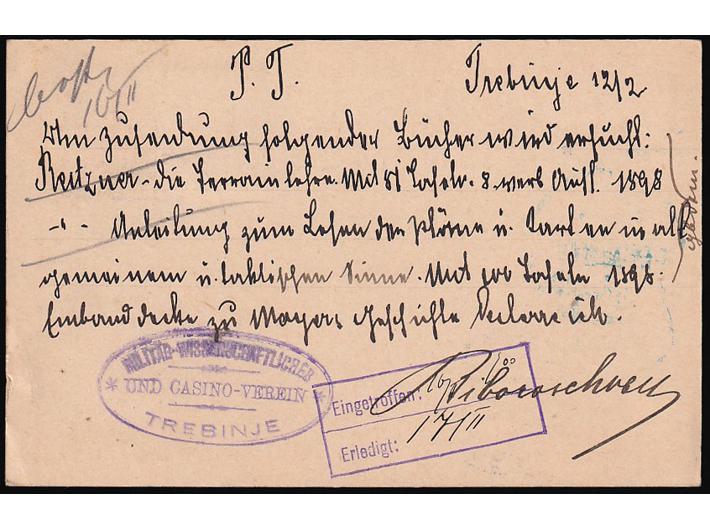 P. T.
Trebinje 12/2
16/II
Um Zusendung folgender Bücher wird ersucht:
Reitzner - die Terrainlehre. Mit 81 Tafeln. 8. verb Aufl. 1898
-"- Anleitung zum Lesen der Pläne u. Karten in all
gemeinem u. taktischen Sinne. Mit 100 Tafeln 1898.
Einbanddecke zu Mayers Geschichte
MILITÄR-WISSENSCHAFTLICHER
UND CASINO-VEREIN
TREBINJE
Eingetroffen:
17/II
Erledigt: